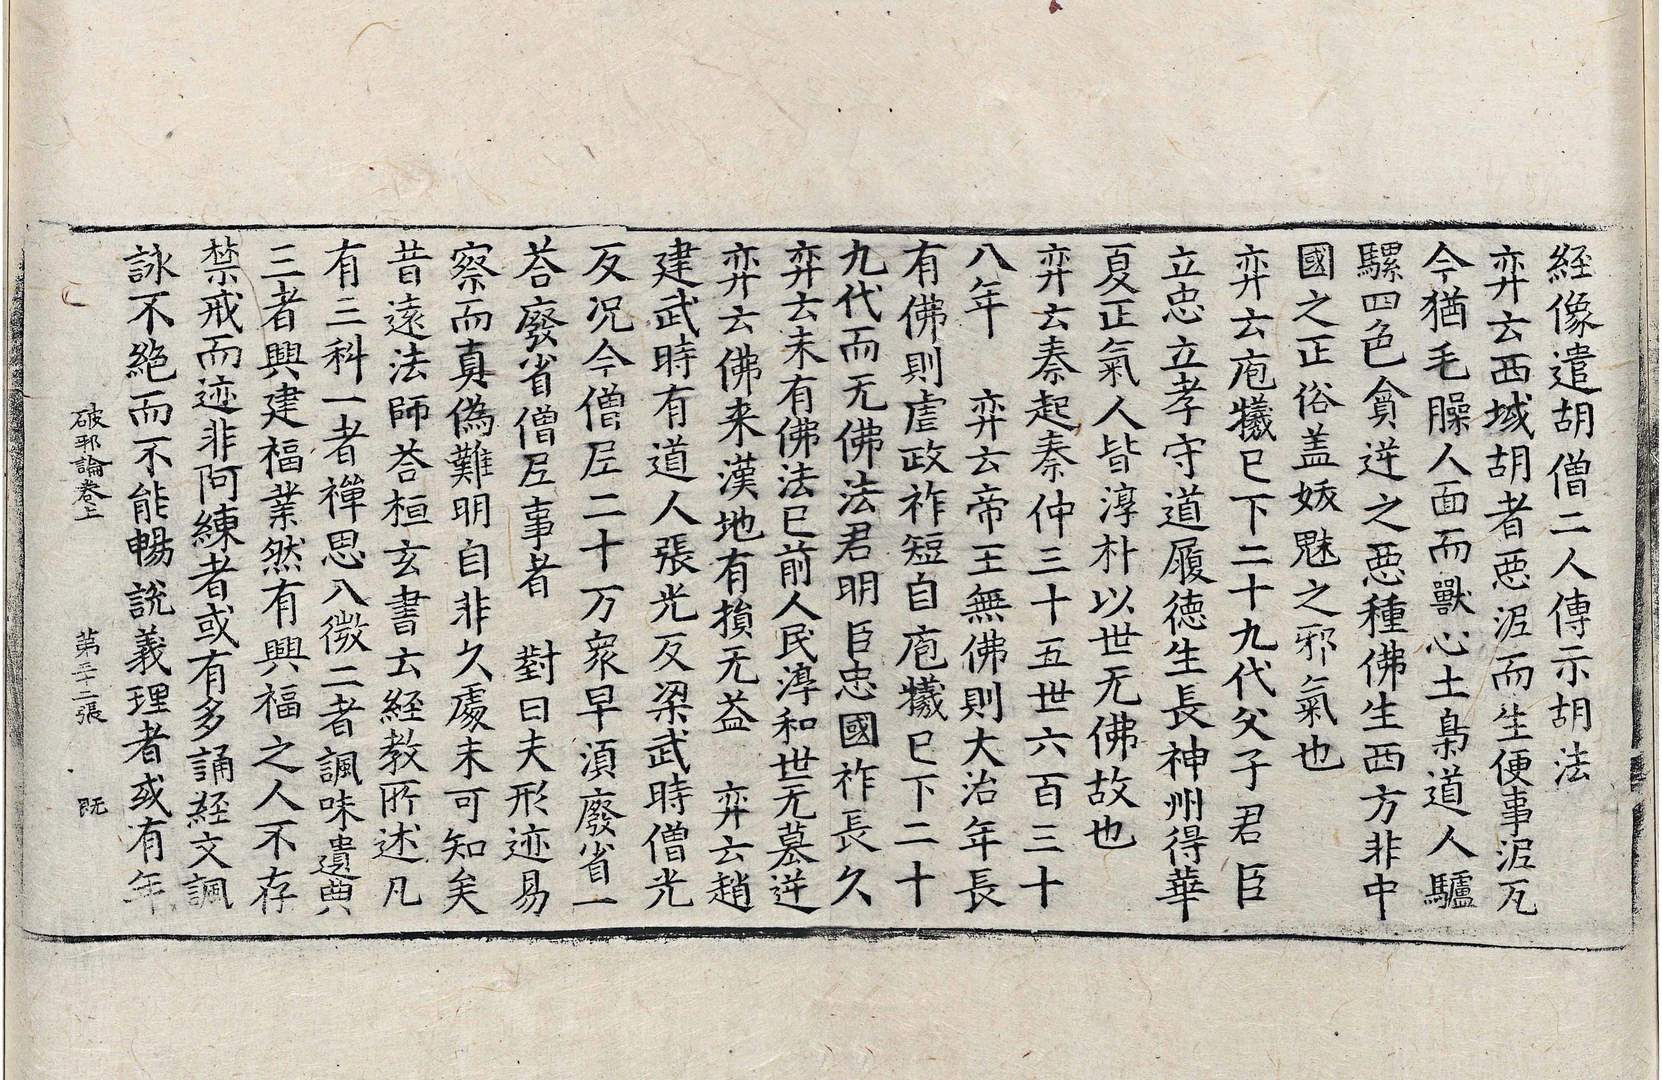 経像遣胡僧二人傳示胡法
弈云西域胡者惡泥而生便事泥瓦
今猶毛臊人面而獸心土梟道人驢
騾四色貪逆之惡種佛生西方非中
國之正俗盖妖魅之邪氣也
弈云庖犧已下二十九代父子君臣
立忠立孝守道履德生長神州得華
夏正氣人皆淳朴以世无佛故也
弈云秦起秦仲三十五世六百三十
八年　弈云帝王無佛則大治年長
有佛則虐政祚短自庖犧已下二十
九代而无佛法君明臣忠國祚長久
弈云未有佛法已前人民淳和世无篡逆
弈云佛来漢地有損无益　弈云趙
建武時有道人張光反梁武時僧光
反况今僧尼二十万衆早須廢省一
荅廢省僧尼事者　對曰夫形迹易
察而真僞難明自非久處未可知矣
昔遠法師荅桓玄書云經教所述凡
有三科一者禪思入微二者諷味遺典
三者興建福業然有興福之人不存
禁戒而迹非阿練者或有多誦經文諷
詠不絕而不能暢說義理者或有年
破邪論卷上　第二十二張　既